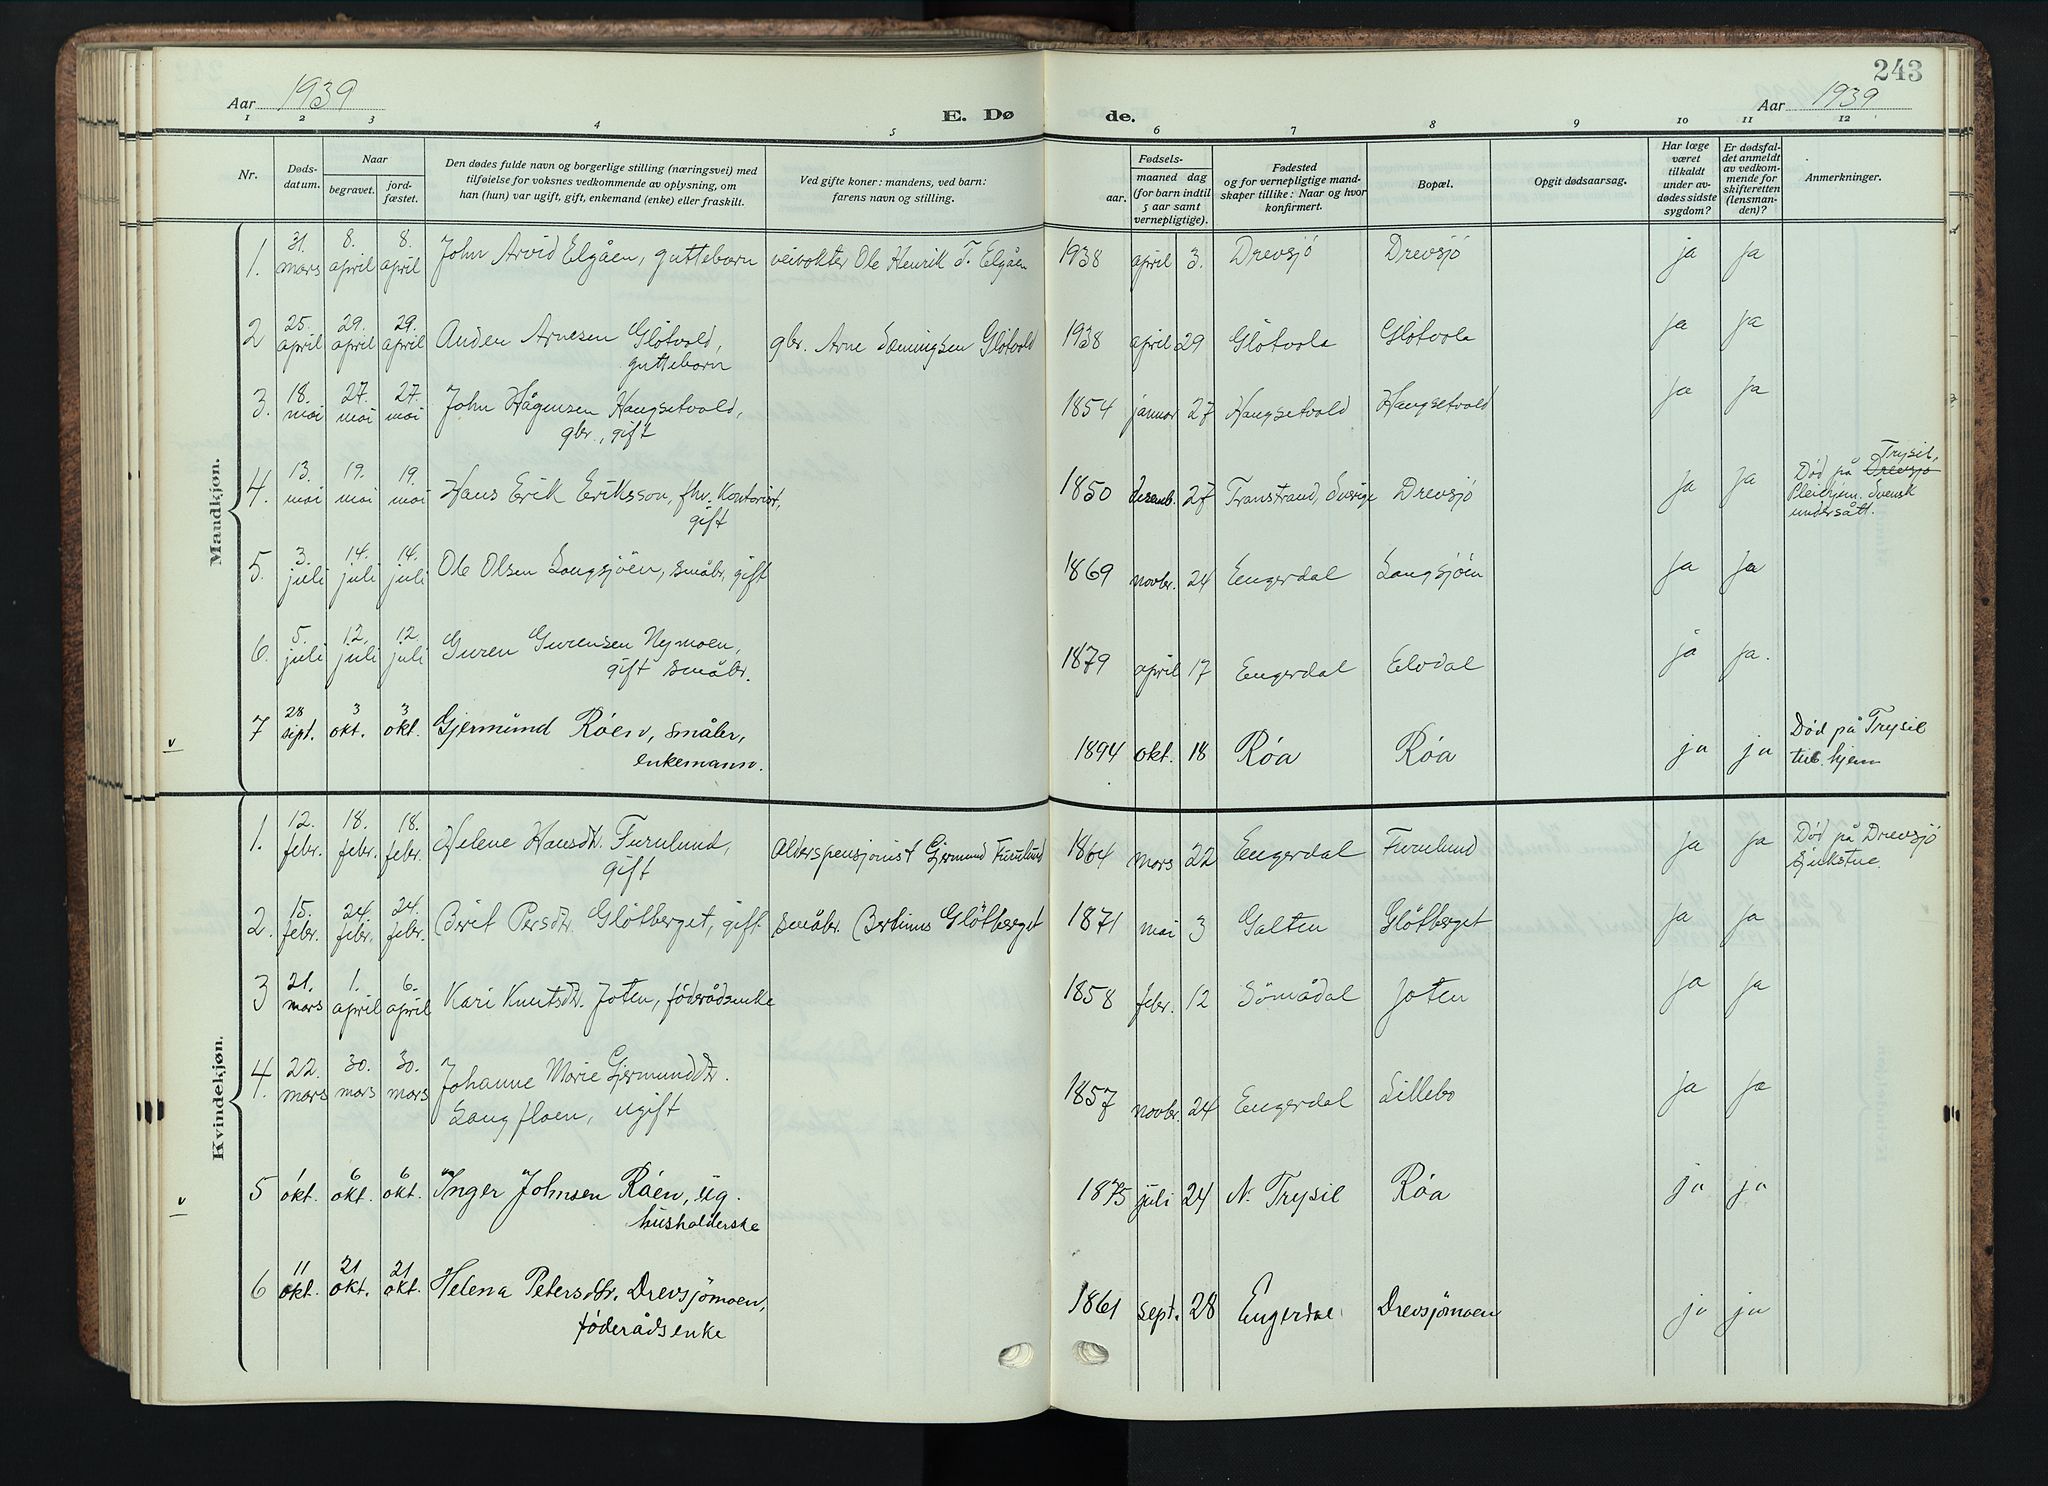 243
Aar 1939
E. Døde.
Aar 1939
1 2 3 4 5 6 7 8 9 10 11 12
Nr.
Døds-datum.
Naar
begravet.
jord-fæstet.
Den dødes fulde navn og borgerlige stilling (næringsvei) med
tilføielse for voksnes vedkommende av oplysning, om
han (hun) var ugift, gift, enkemand (enke) eller fraskilt.
Ved gifte koner: mandens, ved barn:
farens navn og stilling.
Fødsels-
aar.
maaned dag
(for barn indtil
5 aar samt
vernepligtige).
Fødested
og for vernepligtige mand-
skaper tillike: Naar og hvor
konfirmert.
Bopæl.
Opgit dødsaarsag.
Har læge
været
tilkaldt
under av-
dødes sidste
sygdom?
Er dødsfal-
det anmeldt
av vedkom-
mende for
skifteretten
(lensman-
den)?
Anmerkninger.
Mandkjøn.
1. 31. mars 8. april 8. april John Arvid Elgåen, guttebarn veivokter Ole Henrik T. Elgåen 1938 april 3. Drevsjö Drevsjö ja ja
2 25. april 29. april 29. april Anden Arnesen Glötvold, guttebarn gbr. Arne Sæmingsen Glötvold 1938 april 29 Glötvola Glötvola ja ja
3. 18. mai 27. mai 27. mai John Hågensen Haugsetvold, gbr., gift 1854 januar 27 Haugsetvold Haugsetvold ja ja
4. 13. mai 19. mai 19. mai Hans Erik Eriksson, fhv. Kontorist, gift 1850 desemb. 27 Transtrand, Sverige Drevsjö ja ja Död på Drevsjö Trysil, Pleiehjem. Svensk undersått.
5. 3. juli 14. juli 14. juli Ole Olsen Langsjöen, småbr., gift 1869 novbr. 24 Engerdal Langsjöen ja ja
6. 5. juli 12. juli 12. juli Guren Gurensen Nymoen, gift småbr. 1879 april 17 Engerdal Elvdal ja ja.
7 28 sept. 3 okt. 3 okt. Gjermund Røen, småbr, enkemann. 1894 okt. 18 Røa Røa ja ja Död på Trysil tub. hjem
Kvindekjøn.
1. 12. febr. 18. febr. 18. febr. Helene Hansdtr. Furulund, gift Alderspensjonist Gjermund Furulund 1864 mars 22 Engerdal Furulund ja ja Död på Drevsjö sjukstue
2. 15. febr. 24. febr. 24. febr. Berit Persdtr. Glötberget, gift. småbr. Bertinus Glötberget 1871 mai 3 Galten Glötberget ja ja
3 21. mars 1. april 6. april Kari Knutsdtr. Joten, föderådsenke 1858 febr. 12 Sömådal Joten ja ja
4. 22. mars 30. mars 30. mars Johanne Marie Gjermunddtr. Langfloen, ugift 1857 novbr. 24 Engerdal Lillebo ja ja
5 1 okt. 6 okt. 6 okt. Inger Johnsen Røen, ug. husholderske 1875 juli 24 N. Trysil Røa ja ja
6 11 okt. 21 okt. 21 okt. Helena Petersdtr. Drevsjømoen, føderådsenke 1861 sept. 28 Engerdal Drevsjømoen ja ja